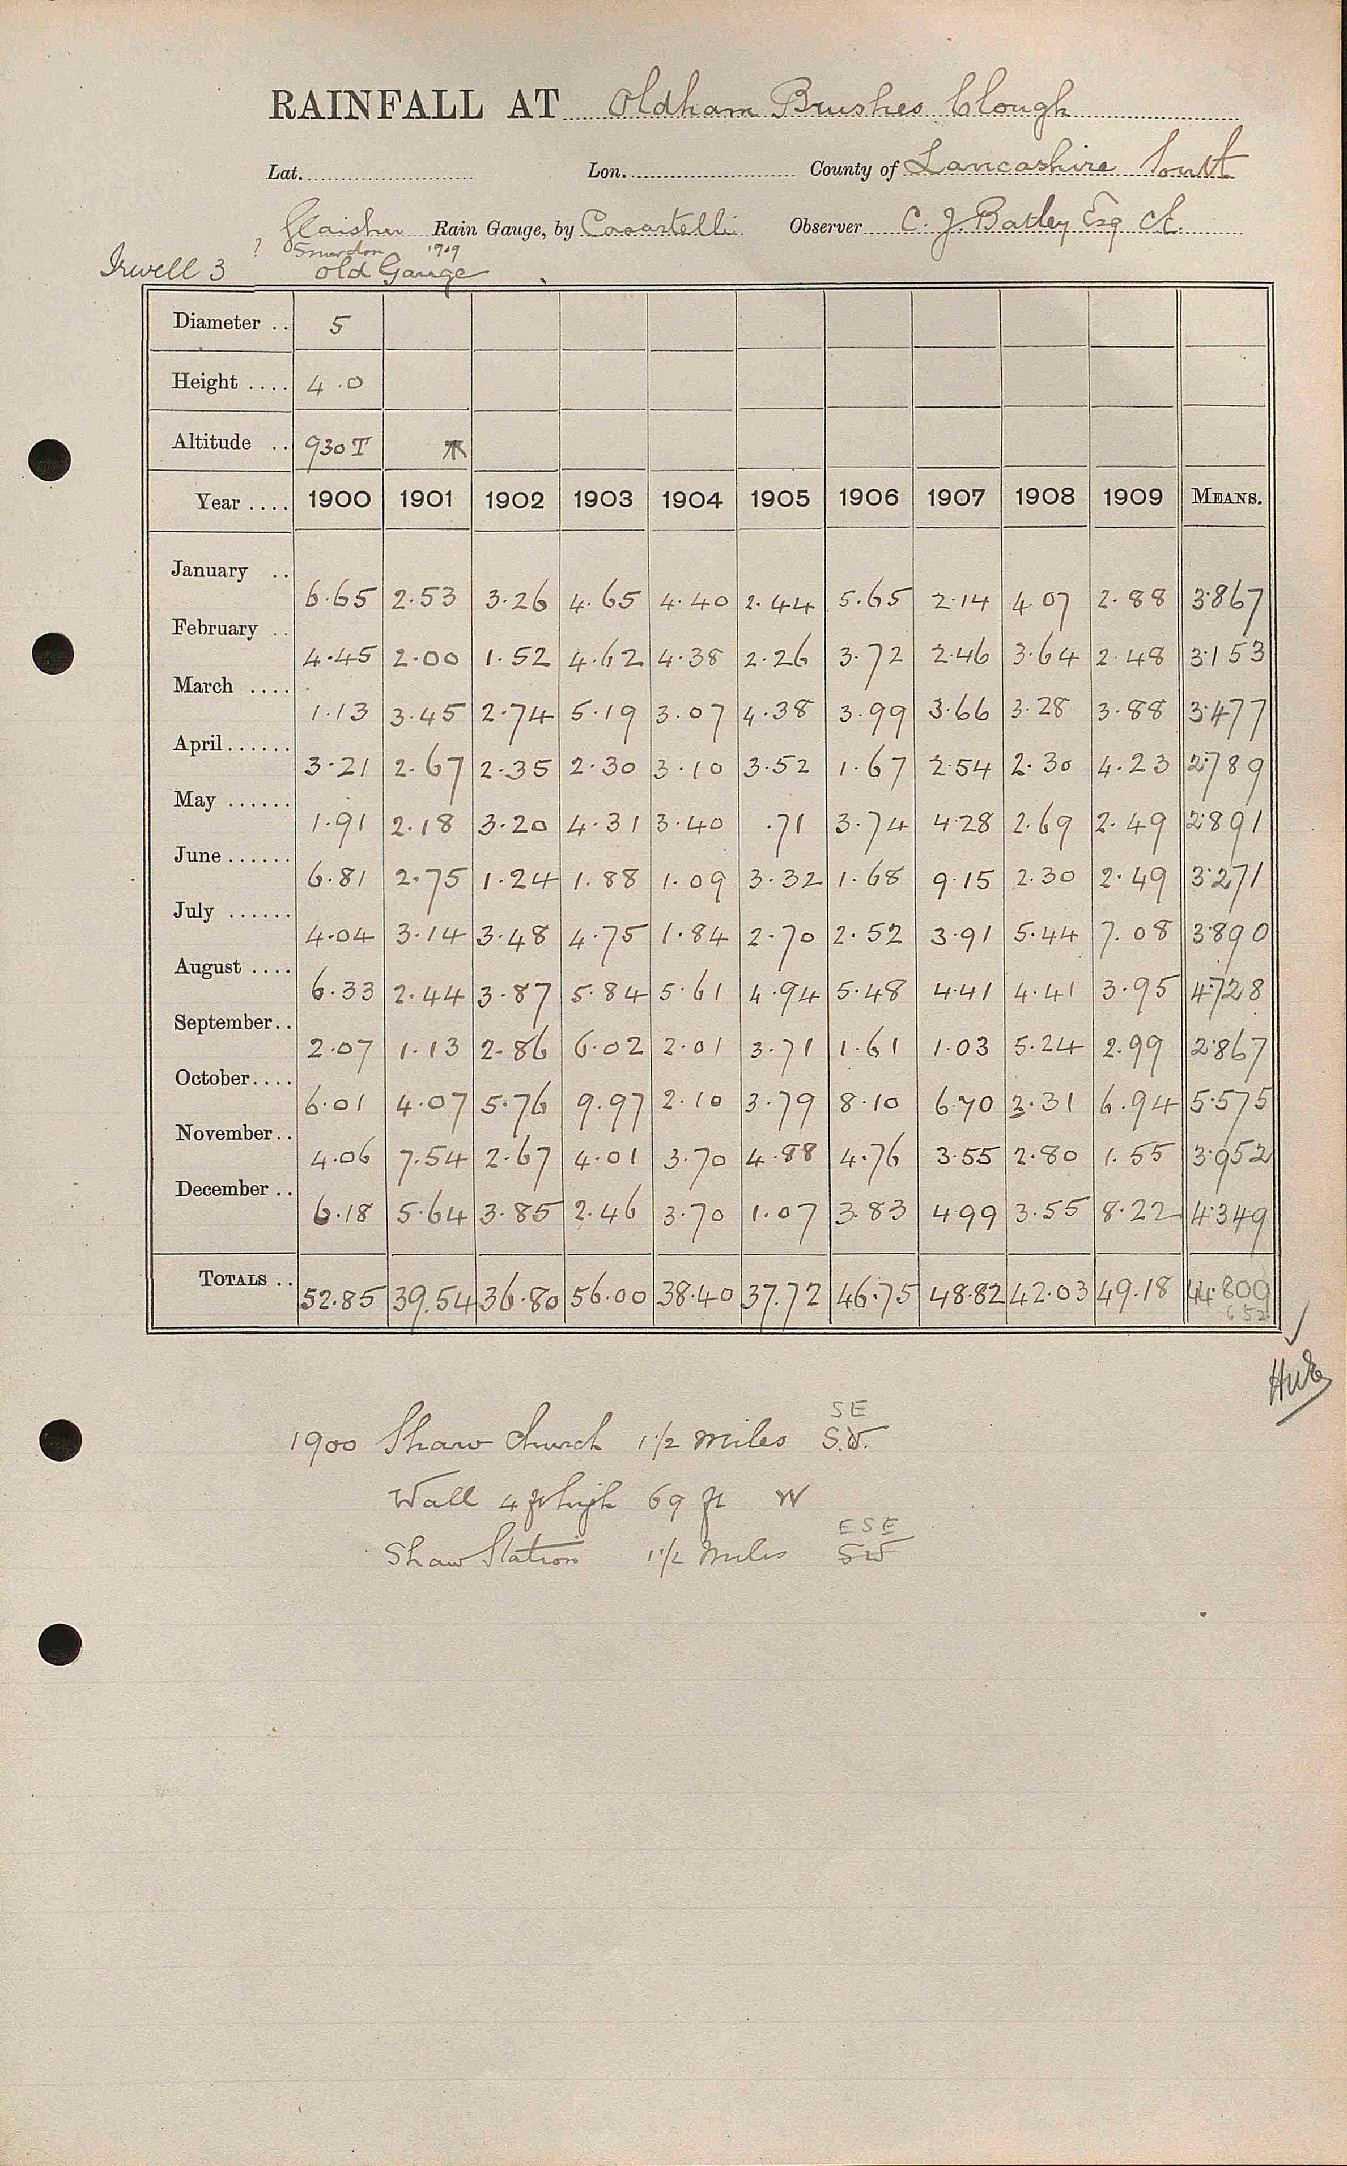 RAINFALL AT Oldham Brushes Clough
Lat. Lon. County of Lancashire South
Glaisher Rain Gauge, by Casartelli Observer C. J. Batley Esq CE.
? 1909
Irwell 3 old Gauge
Diameter .. 5
Height .... 4.0
Altitude .. 930 T
Year .... 1900 1901 1902 1903 1904 1905 1906 1907 1908 1909 MEANS.
January .. 6.65 2.53 3.26 4.65 4.40 2.44 5.65 2.14 4.07 2.88 3.867
February .. 4.45 2.00 1.52 4.62 4.38 2.26 3.72 2.46 3.64 2.48 3.153
March .... 1.13 3.45 2.74 5.19 3.07 4.38 3.99 3.66 3.28 3.88 3.477
April ...... 3.21 2.67 2.35 2.30 3.10 3.52 1.67 2.54 2.30 4.23 2.789
May ...... 1.91 2.18 3.20 4.31 3.40 .71 3.74 4.28 2.69 2.49 2.891
June ...... 6.81 2.75 1.24 1.88 1.09 3.32 1.68 9.15 2.30 2.49 3.271
July ...... 4.04 3.14 3.48 4.75 1.84 2.70 2.52 3.91 5.44 7.08 3.890
August .... 6.33 2.44 3.87 5.84 5.61 4.94 5.48 4.41 4.41 3.95 4.728
September .. 2.07 1.13 2.86 6.02 2.01 3.71 1.61 1.03 5.24 2.99 2.867
October .... 6.01 4.07 5.76 9.97 2.10 3.79 8.10 6.70 2.31 6.94 5.575
November .. 4.06 7.54 2.67 4.01 3.70 4.88 4.76 3.55 2.80 1.55 3.952
December .. 6.18 5.64 3.85 2.46 3.70 1.07 3.83 4.99 3.55 8.22 4.349
TOTALS .. 52.85 39.54 36.80 56.00 38.40 37.72 46.75 48.82 42.03 49.18 44.809
652
SE
1900 Shaw Church 1 1/2 miles S.W.
Wall 4 ft high 69 ft W
ESE
Shaw Station 1 1/2 Miles SW